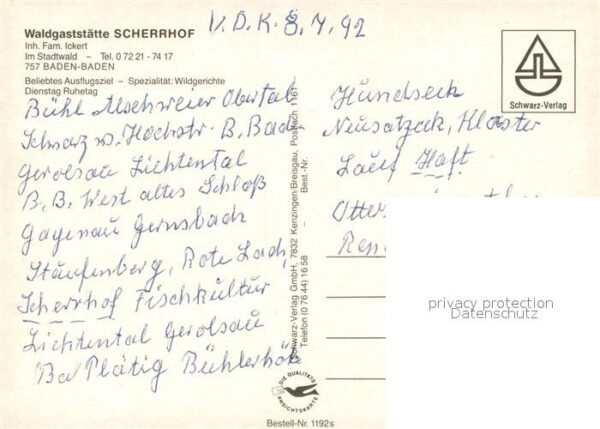 V.D.K. 8.7.92
Waldgaststätte SCHERRHOF
Inh. Fam. Ickert
Im Stadtwald – Tel. 0 72 21 - 74 17
757 BADEN-BADEN
Beliebtes Ausflugsziel – Spezialität: Wildgerichte
Dienstag Ruhetag
Bühl Altschweier Obertal
Schwarzw. Hochstr. B. Baden
Gerolsau Lichtental
B. B. West altes Schloß
Gagenau Gernsbach
Staufenberg, Rote Lache
Scherrhof Fischkultur
Lichtental Gerolsau
Plättig Bühlerhöh
Schwarz-Verlag GmbH, 7832 Kenzingen-Breisgau, Postfach 1161
Telefon (0 76 44) 16 58 – Best.-Nr.
DIE QUALITÄTS ANSICHTSKARTE
Bestell-Nr. 1192s
Schwarz-Verlag
Hundseck
Neusatzeck, Kloster
Lauf Haft
Otters
Ren
privacy protection
Datenschutz